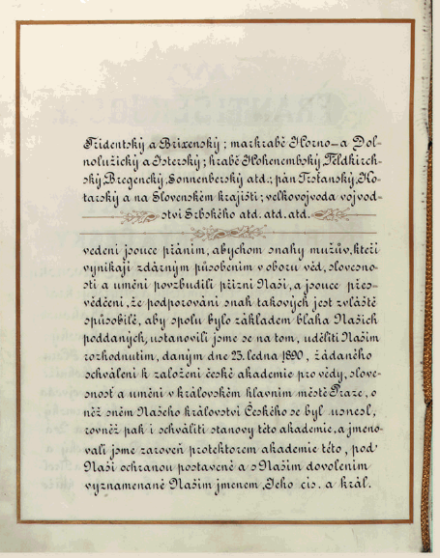 Tridentský a Brixenský; markrabě Horno- a Dol-
nolužický a Isterský; hrabě Hohenembský, Feldkirch-
ský, Bregencký, Sonnenberský atd.; pán Trstanský, Ko-
tarský a na Slovenském krajišti; velkovojvoda vojvod-
ství Srbského atd. atd. atd.
vedeni jsouce přáním, abychom snahy mužův, kteří
vynikají zdárným působením v oboru věd, slovesno-
sti a umění povzbudili přízní Naší, a jsouce přes-
vědčeni, že podporování snah takových jest zvláště
způsobilé, aby spolu bylo základem blaha Našich
poddaných, ustanovili jsme se na tom, uděliti Naším
rozhodnutím, daným dne 23. ledna 1890, žádaného
schválení k založení české akademie pro vědy, slove-
snost a umění v královském hlavním městě Praze, o
něž sněm Našeho království Českého se byl usnesl,
rovněž pak i schváliti stanovy této akademie, a jmeno-
vali jsme zároveň protektorem akademie této, pod
Naší ochranou postavené a s Naším dovolením
vyznamenané Naším jménem, Jeho cís. a král.